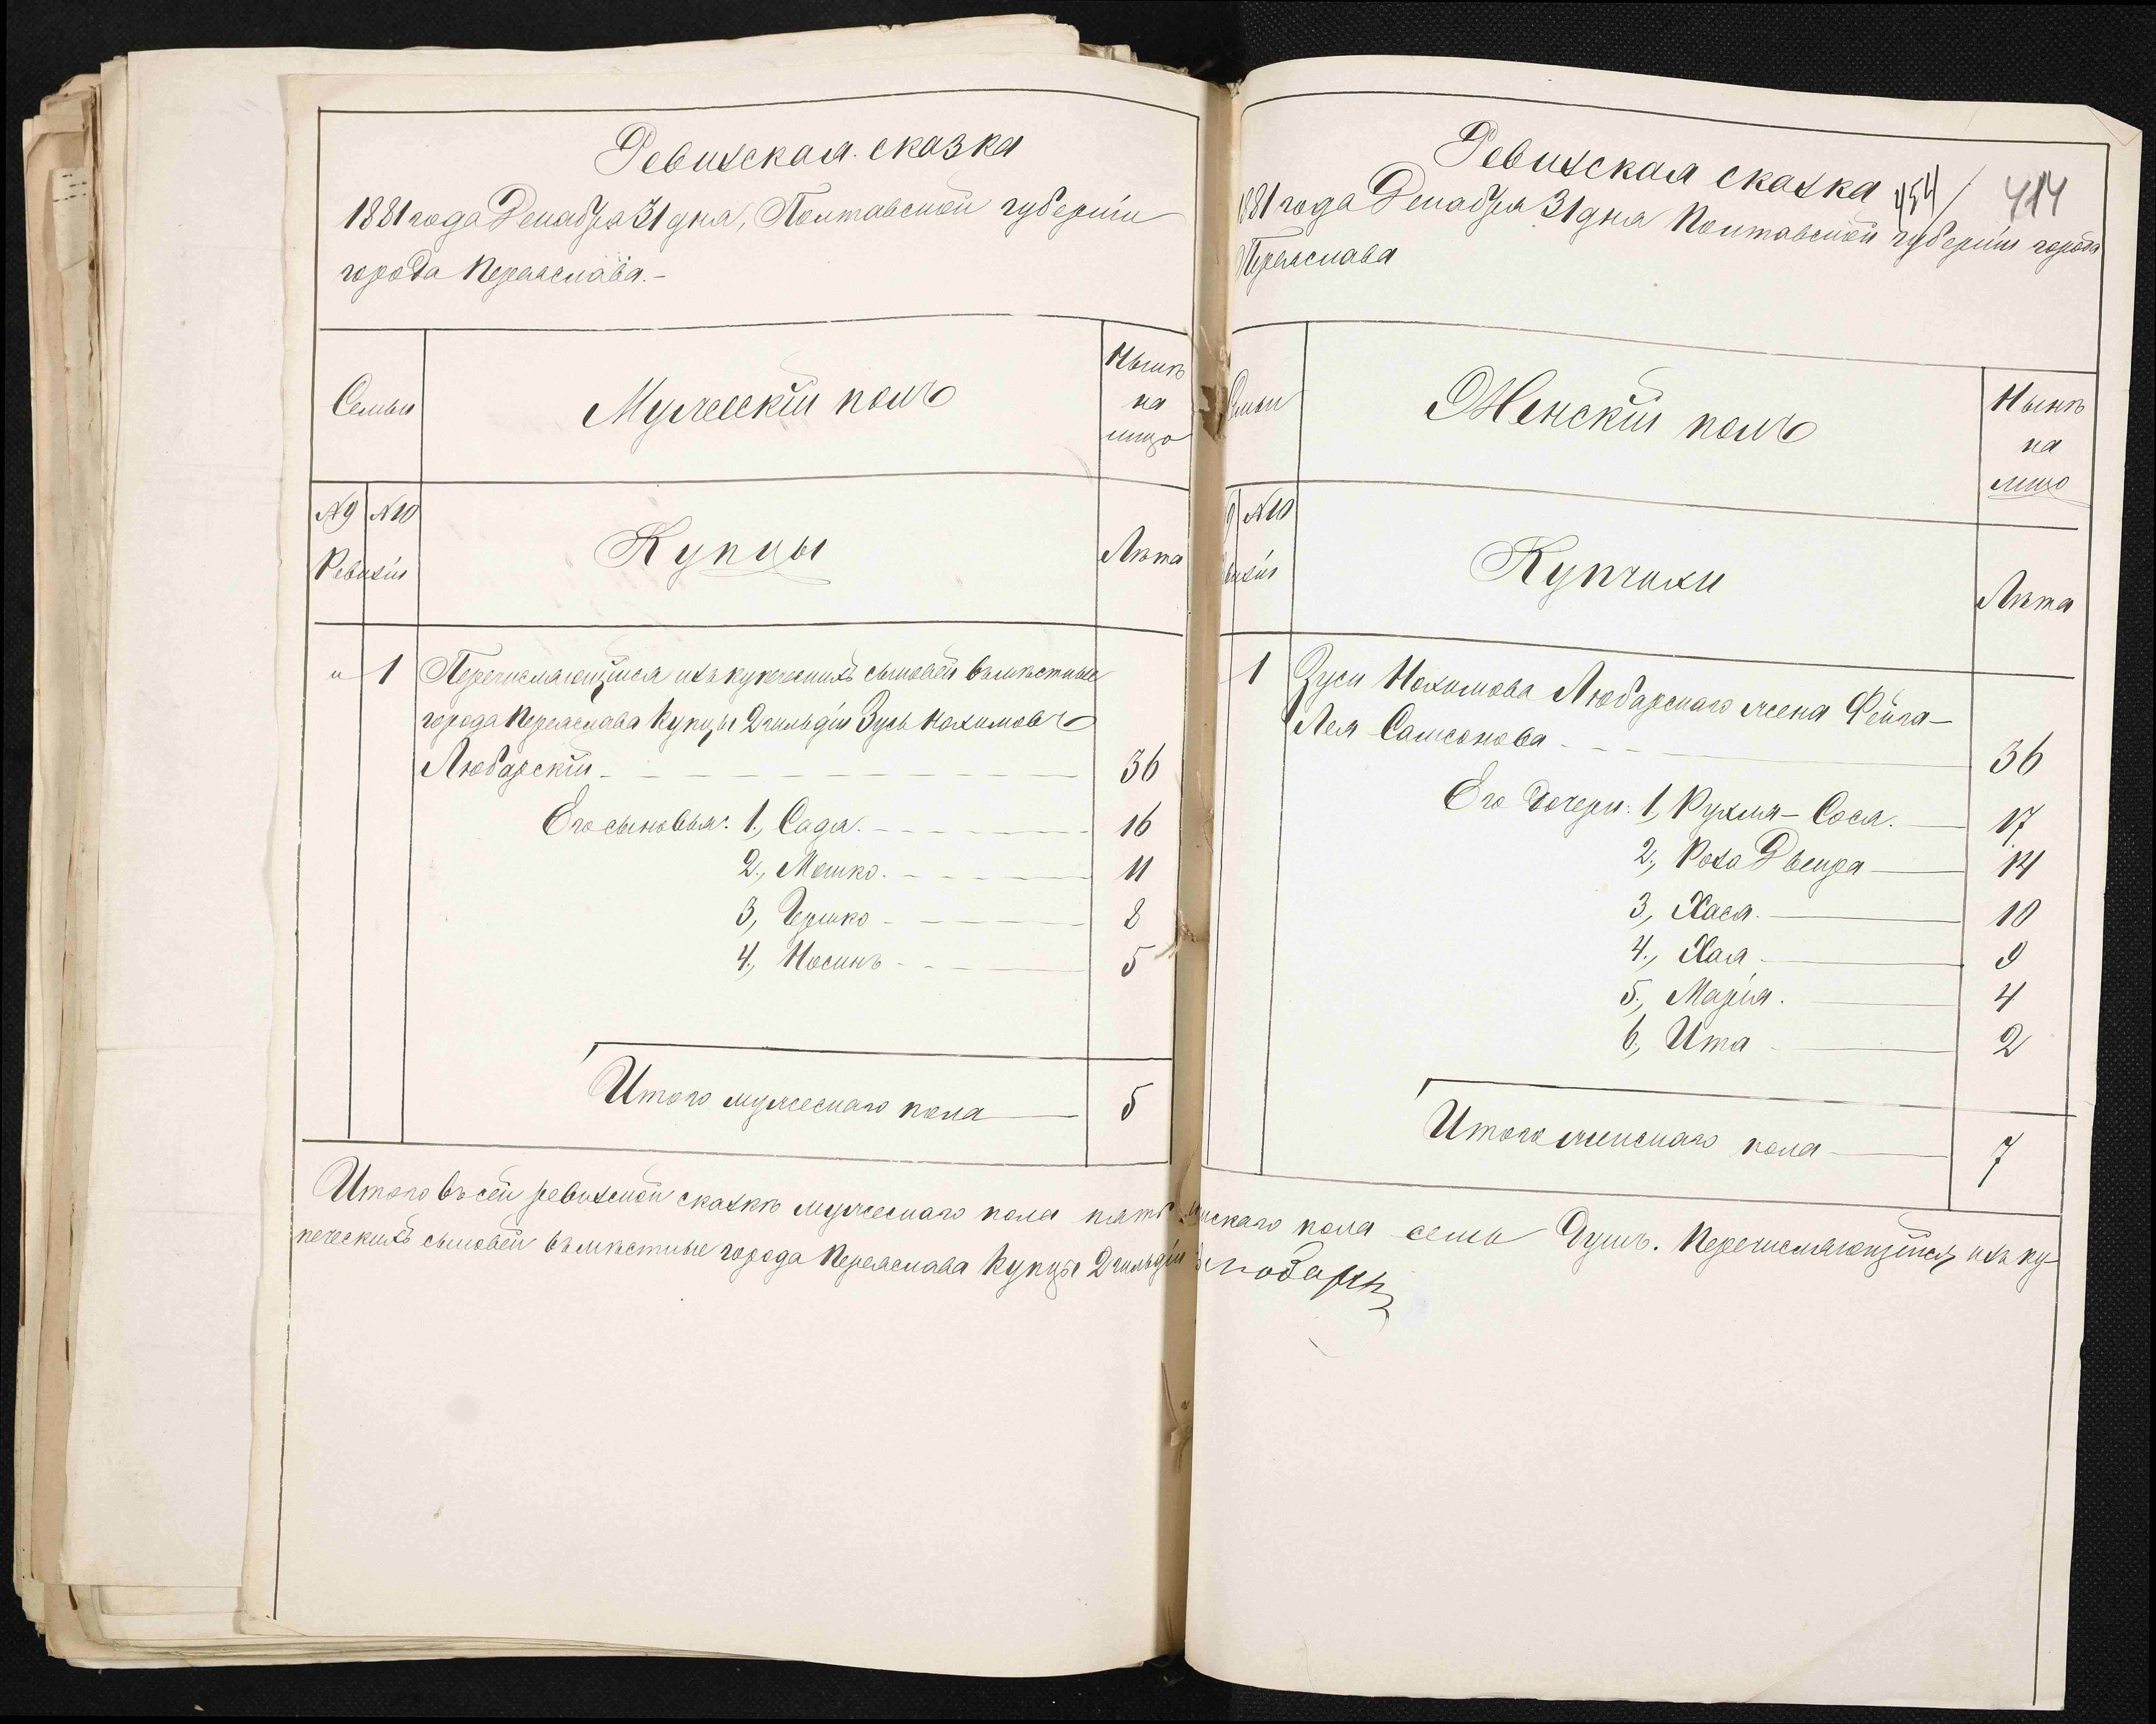 Ревизская сказка
1881 года Декабря 31 дня, Полтавской губерніи
города Переяслава.-
Семьи
Мужескій полъ
Нынѣ
на
лицо
№9 №10
Ревизіи
Купцы
Лѣта
" 1 Перечисляющійся изъ купеческихъ сыновей въ мѣстные
города Переяслава Купцы 2 гильдіи Зусь Нохимовъ
Любарскій 36
Его сыновья: 1., Сада. 16
2., Мошко. 11
3, Гершко 8
4., Носинъ 5
Итого мужескаго пола 5
Итого въ сей ревизской сказкѣ мужескаго пола пять
печескихъ сыновей въ мѣстные города Переяслава Купцы 2 гильдіи
Ревизская сказка
454 / 414
1881 года Декабря 31 дня Полтавской губерніи города
Переяслава
Семьи
Женскій полъ
Нынѣ
на
лицо
9 №10
визіи
Купчихи
Лѣта
1 Зуси Нохимова Любарскаго жена Фейга-
Лея Самсонова 36
Его дочери: 1, Рухля-Сося. 17
2., Роза Двейра 14
3., Хася. 10
4., Хая 9
5., Марія. 4
6., Ита 2
Итого женскаго пола 7
нскаго пола семь Душъ. Перечисляющійся изъ ку-